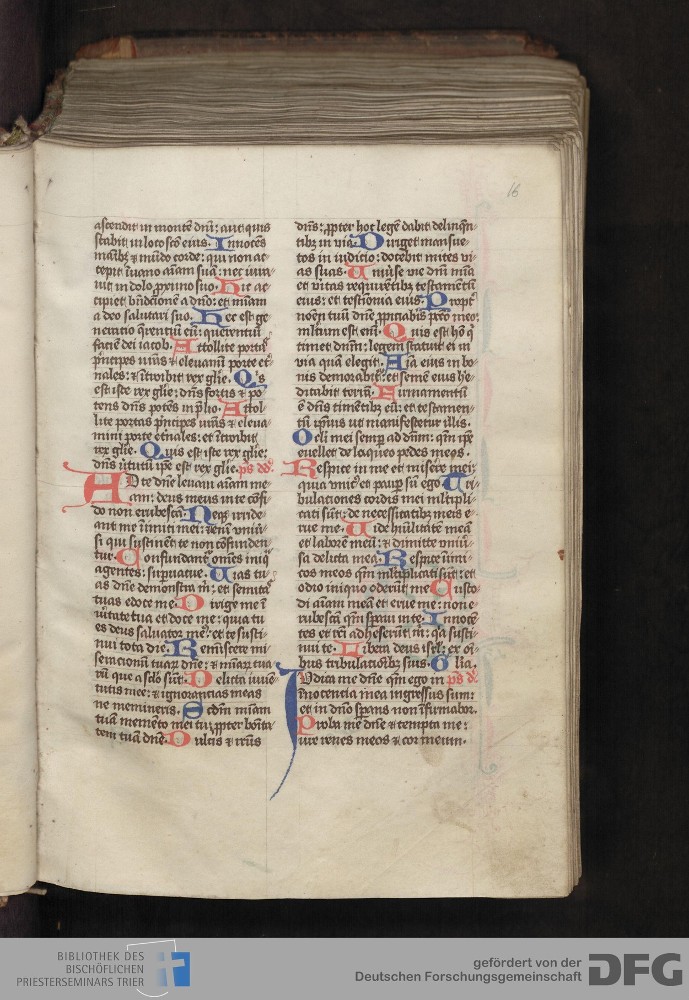 16
ascendit in montē dñi: aut quis
stabit in loco sc̄o eius. Innocēs
manibꝫ ⁊ mūdo corde: qui non ac-
cepit ī uano aīam suā: nec iura-
uit in dolo proximo suo. Hic ac-
cipiet bn̄dictionē a dño: et mīam
a deo salutari suo. Hec est ge
neratio q̄rentiū eū: querentiū
faciē dei iacob. Attollite portas
pͥncipes ur̄as ⁊ eleuamī porte et-
nales: ⁊ ītroibit rex glīe. Qͥs
est iste rex glīe: dñs fortis ⁊ po
tens dñs potēs in p̄lio. Attol-
lite portas pͥncipes ur̄as ⁊ eleua
mini porte et̄nales: et ītroibit
rex glīe. Quis est iste rex glīe:
dñs uͥtutū ip̄e est rex glīe. p̄s dd̄.
AD te dñe leuaui aīam me
am: deus meus in te cōfi
do non erubescā. Neqꝫ irride
ant me inimici mei: etenī uniu͛
si qui sustinent te non cōfunden
tur. Confundant͛ om̄es iniq̄
agentes: sup̄uacue. Uias tu
as dñe demonstra m̄: et semitas
tuas edoce me. Dirige me ī
ueritate tua et doce me: quia tu
es deus saluator meꝰ: et te susti-
nui tota die. Reminiscere mi
serationū tuaꝝ dñe: ⁊ mīaꝝ tua
rū que a sclō sūt. Delicta iuue-
tutis mee: ⁊ ignorantias meas
ne memineris. Scdm mīam
tuā memēto mei tu: ꝓpter bonita
tem tuā dñe. Dulcis ⁊ rectus
dñs: ꝓpter hoc legē dabit delinqn̄
tibꝫ in via. Diriget mansue
tos in iudicio: docebit mites vi-
as suas. Uniuͤse vie dñi mīa
et ueritas requirentibꝫ testamentū
eius: et testīonia eius. Propt͛
nomē tuū dñe ꝓpitiab̄is pccō meo:
multum est enī. Quis est hō q̇
timet dñm: legem statuit ei in
via quā elegit. Aīa eius in bo-
nis demorabitur: et semē eius he-
ditabit terrā. Firmamentū
ē dñs timētibꝫ eū: et testamen-
tū ipsius ut manifestetur illis.
Oculi mei semper ad dñm: qm̄ ip̄e
euellet de laqueo pedes meos.
Respice in me et misere mei:
quia unicꝰ et paup̄ sū ego. Tri-
bulationes cordis mei mltipli-
cati sūt: de necessitatibꝫ meis e-
rue me. Uide humilitatē meā
et laborē meū: ⁊ dimitte uniu͛
sa delicta mea. Respice inimi
cos meos qm̄ mltiplicati sūt: et
odio iniquo oderūt me. Custo-
di aīam meā et erue me: non e-
rubescā qm̄ speraui in te. Innocē-
tes et rc̄i adheserūt m̄: qa susti-
nui te. Libera deus isrl̄: ex oī-
bus tribulationibꝫ suis. Glīa.
Iudica me dñe qm̄ ego in p̄s d.
innocentia mea ingressus sum:
et in dño sperans non īfirmabor.
Proba me dñe ⁊ tempta me:
ure renes meos ⁊ cor meum.
BIBLIOTHEK DES
BISCHÖFLICHEN
PRIESTERSEMINARS TRIER
gefördert von der
Deutschen Forschungsgemeinschaft DFG